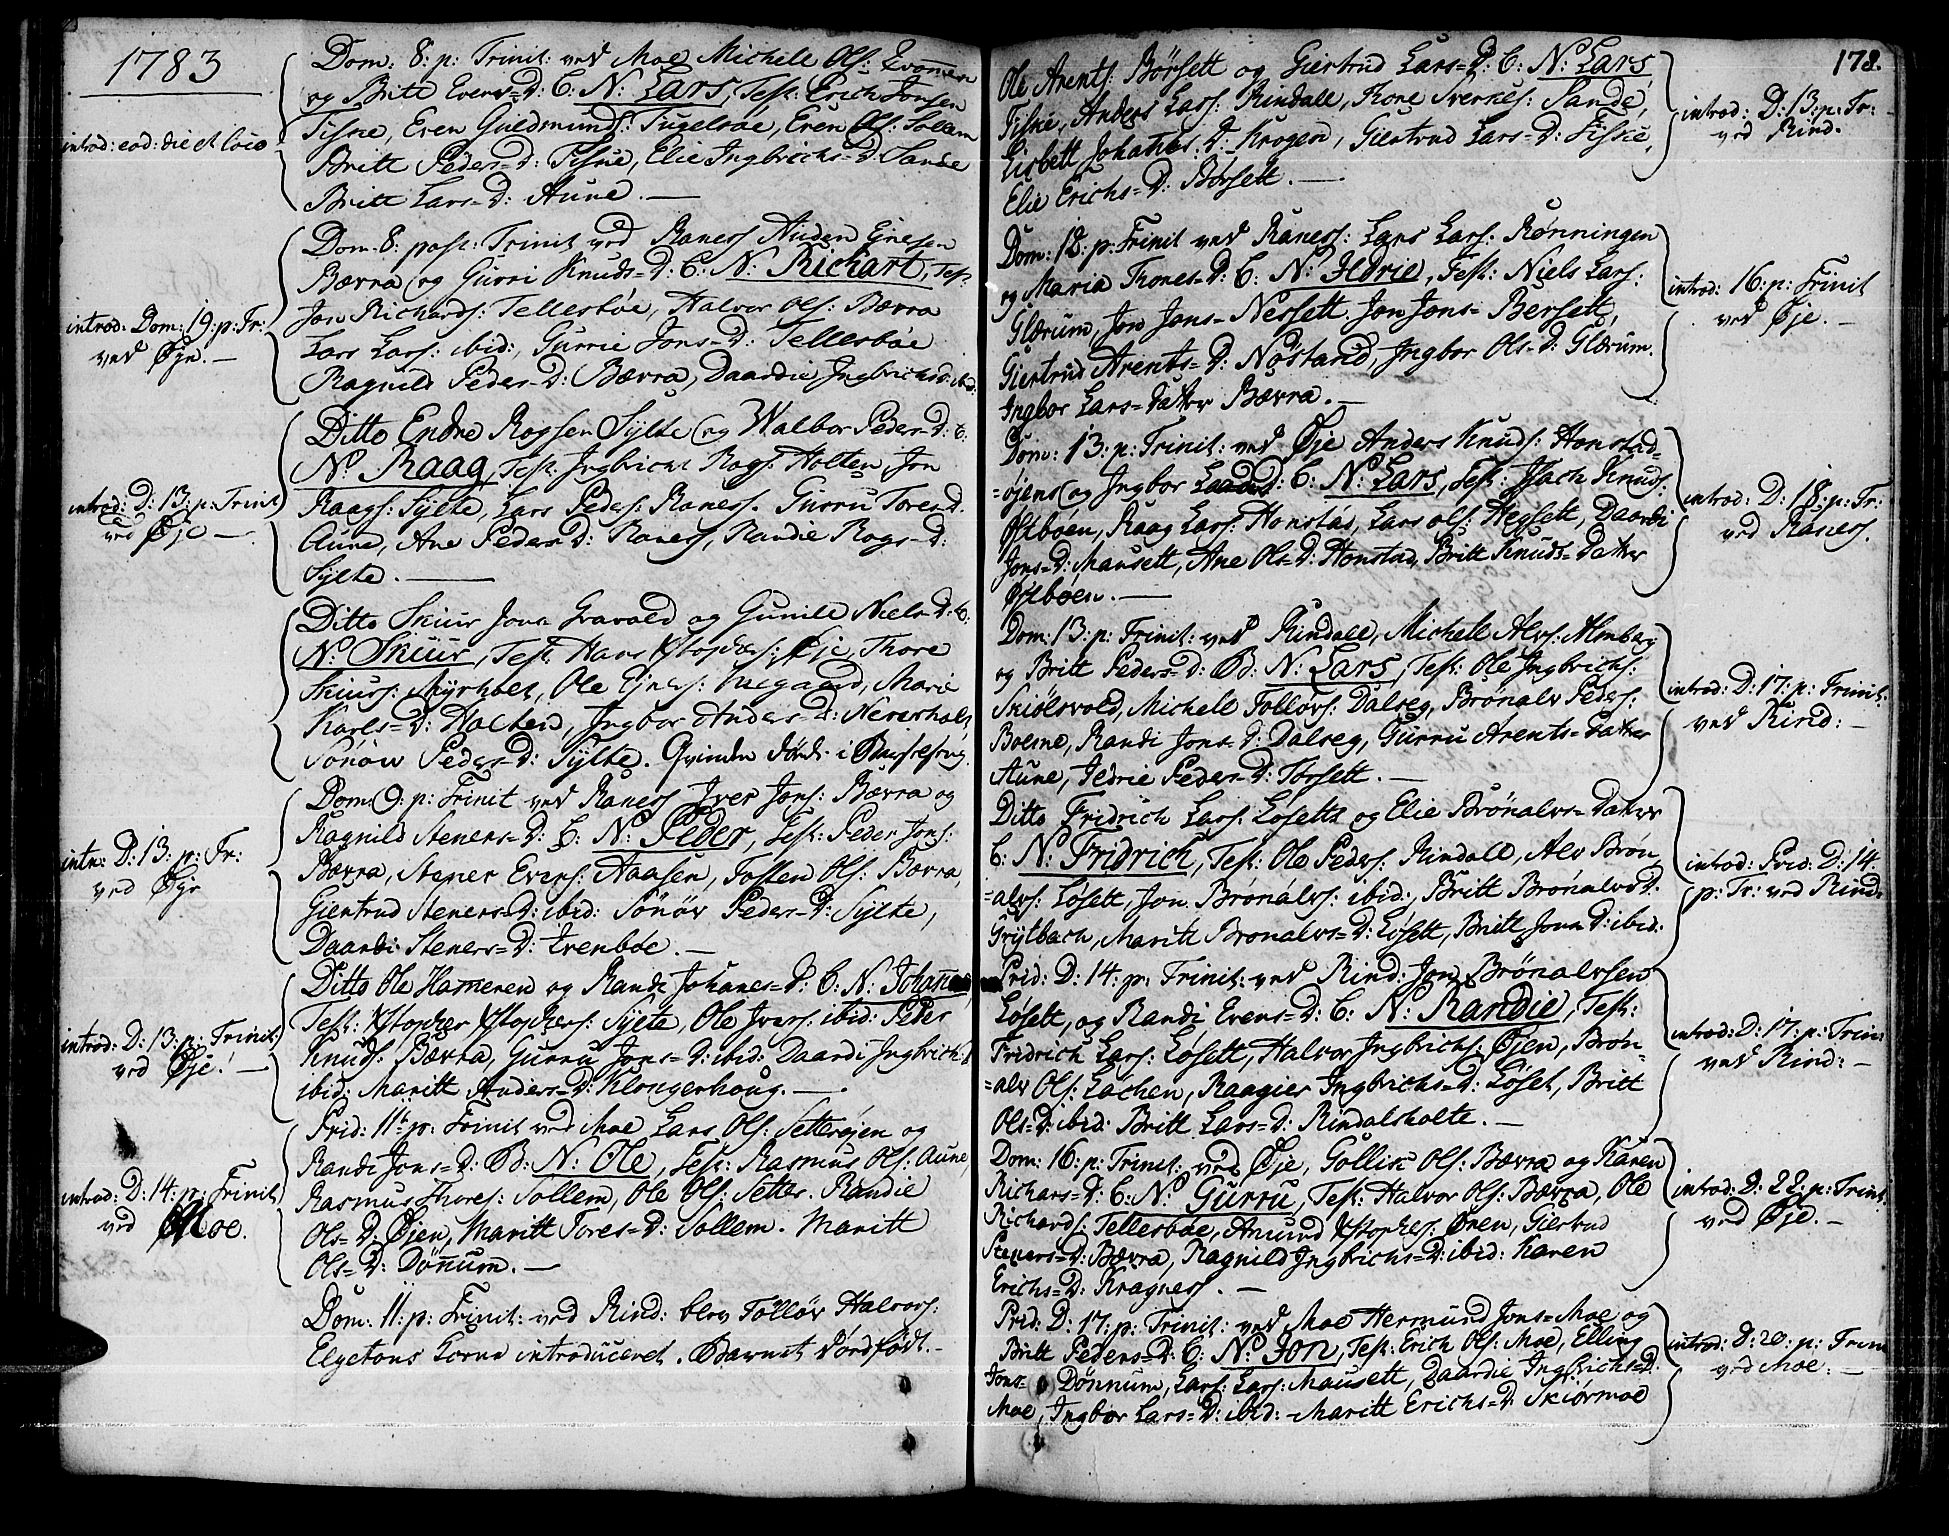 1783
Dom: 8: p: Trinit: ved Moe Michele Ols: Qvammen
og Britt Evens=D: C: N: Lars, Test: Erich Jonsen
Fiske, Even Guldmunds: Fugelsøe, Even Ols: Sollem
Britt Peders=D: Fiske, Elie Ingbrichs=D: Sande
Britt Lars=D: Aune. —
introd: eod: die et loco
Dom: 8: post: Trinit ved Raness Auden Ejnesen
Bævra og Gurri Knuds=D: C: N: Richart, Test:
Jon Richards: Tellesbøe, Halvor Ols: Bævra
Lars Lars: ibid:, Gurrie Jons=D: Tellesbøe
Ragnild Peders=D: Bævra, Daardie Ingbrichsd: ibid:
introd: Dom: 19: p: Tr:
ved Øje. —
Ditto Endre Rogsen Sylte og Walbor Peders=D: C:
N: Raag, Test: Ingbricht Rogs: Holten, Jon
Raags: Sylte, Lars Peders: Raness. Gurru Tores D.
Aune, Ane Peders D: Raness, Randie Rogs=D:
Sylte. —
introd: D: 13: p: Trinit
ved Øje —
Ditto Skuur Jons Gravald og Gunile Niels=D: C:
N: Skuur, Test. Hans Xstophers: Øje, Thore
Skuurs: Myrholt, Ole Ejners: Megaard, Marie
Karls=D: Halten, Ingbor Anders=D: Neverholt
Sønøw Peders=D: Sylte. Qvinden døde i Barselseng.
Dom: 9: p: Trinit ved Raness Iver Jons: Bævra og
Ragnild Steners=D: C: N: Peder, Test: Peder Jons:
Bævra, Stener Evens: Aasen, Tosten Ols: Bævra,
Giertrud Steners=D: ibid: Sønøv Peders=D: Sylte,
Daardi Steners=D: Evenbøe. —
intr: D: 13: p: Tr:
ved Øje
Ditto Ole Hameren og Randi Johanes=D: C: N: Johannes,
Test: Xstopher Xstophers: Sylte, Ole Ivers: ibid: Peder
Knuds: Bævra, Gurru Jons=D: ibid: Daardi Ingbrichs
ibid: Maritt Anders=D: Klongerhoug. —
introd: D: 13: p: Trinit:
ved Øje. —
Prid: 11te p: Trinit ved Moe Lars Ols: Setterøjen og
Randi Jons=D: B: N: Ole, Test: Rasmus Ols: Aune
Rasmus Thores: Sollem, Ole Ols: Setter. Randie
Ols=D: Øjen, Maritt Tores=D: Sollem. Maritt
Ols=D: Dønnum. —
introd: D: 14: p: Trinit
ved Moe.
Dom: 11: p: Trinit: ved Rind: blev Follov Halvors:
Elgetons Kone introduceret. Barnet dødfødt. —
178.
Ole Arents: Børsett og Giertrud Lars=D: C: N: Lars,
Fiske, Anders Lars: Rindall, Trone Sverkes: Sande,
Lisbett Johannes. D: Krogen, Giertrud Lars=D: Fiske,
Elie Erichs=D: Børsett. —
introd: D: 13: p: Tr:
ved Rind.
Dom: 12: p: Trinit ved Raness: Lars Lars: Rønningen
og Maria Trones=D: C: N: Ildrie, Test: Niels Lars:
Glærum, Jon Jons= Nessett. Jon Jons= Bersett,
Giertrud Arents=D: Nøstand, Ingbor Ols=D: Glærum.
Ingbor Lars=datter Bævra. —
introd: 16: p: Trinit
ved Øje. —
Dom: 13: p: Trinit: ved Øje Anders Knuds: Honstad=
=øjens og Ingbor D: C: N: Lars, Test: Isach Knuds:
Østbøen, Raag Lars: Honstad, Lars Ols: Hegsett, Daardi
Jons=D: Mausett, Ane Ols=D: Honstad, Britt Knuds=datter
Østbøen. —
introd: D: 18: p: Tr:
ved Raness.
Dom: 13: p: Trinit: ved Rindall, Michell Alvs: Almberg
og Britt Peders=D: B: N: Lars, Test: Ole Ingbrichs:
Skiølsvold, Michell Follovs: Dalseg, Brønalv Peders:
Boeme, Randi Jons=D: Dalseg, Gurru Arents=datter
Aune, Jedrie Peders=D: Torsett. —
introd: D: 17: p: Trinit:
ved Rind: —
Ditto Fridrich Lars: Løsett og Elie Brønalvs=datter
C: N: Fridrich, Test: Ole Peders: Rindall, Alv Brøn
=alvs: Løsett, Jon Brønalvs: ibid:, Britt Brønalvsd:
Grytbach, Maritt Brønalvs=D: Løsett, Britt Jons D: ibid:
introd: Prid: D: 14.
p: Tr: ved Rind:
Prid: D: 14: p: Trinit: ved Rind: Jon Brønalvsen
Løsett, og Randi Evens=D: C: N: Randie, Test:
Fridrich Lars: Løsett, Halvor Ingbrichs: Øjen, Brøn=
=alv Ols: Lachen, Raagier Ingbrichs=D: Løset, Britt
Ols=D: ibid: Britt Lars=D: Rindalsholte. —
introd: D: 17: p: Trin:
ved Rind: —
Dom: 16: p: Trinit: ved Øje, Gollik Ols: Bævra og Karen
Richars=D: C: N: Gurru, Test: Halvor Ols: Bævra, Ole
Richards: Tellesbøe, Amund Xstophers: Ønen, Giertrud
Steners=D: Bævra, Ragnild Ingbrichs=D: ibid: Karen
Erichs=D: Kragness. —
introd: D: 22: p: Trinit
ved Øje. —
Prid: D: 17: p: Trinit: ved Moe Hermund Jons= Moe og
Britt Peders=D: C: N: Jon, Test: Erich Ols: Moe, Elling
Jons= Dønnum, Lars: Lars: Mausett, Daardie Ingbrichs=D:
Moe, Ingbor Lars=D: ibid: Maritt Erichs=D: Skiørmoe
introd: D: 20: p: Trinit
ved Moe: —